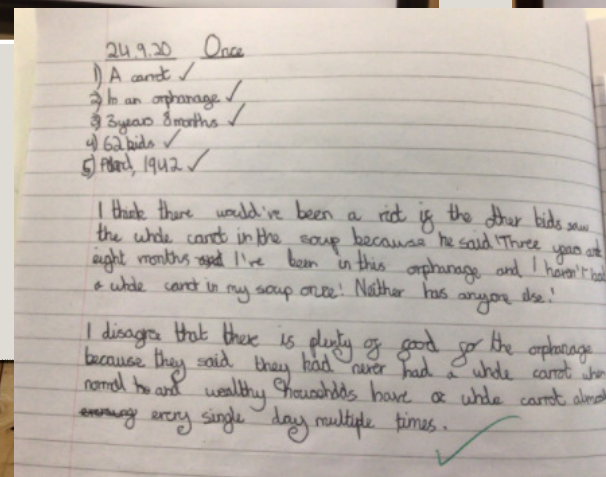 24.9.20 Once
1) A carrot ✓
2) In an orphanage ✓
3) 3 years 8 months ✓
4) 62 kids ✓
5) Poland, 1942 ✓
I think there would've been a riot if the other kids saw
the whole carrot in the soup because he said 'Three years and
eight months I've been in this orphanage and I haven't had
a whole carrot in my soup once! Neither has anyone else.'
I disagree that there is plenty of food for the orphanage
because they said they had never had a whole carrot when
normal and wealthy households have a whole carrot almost
every single day multiple times.